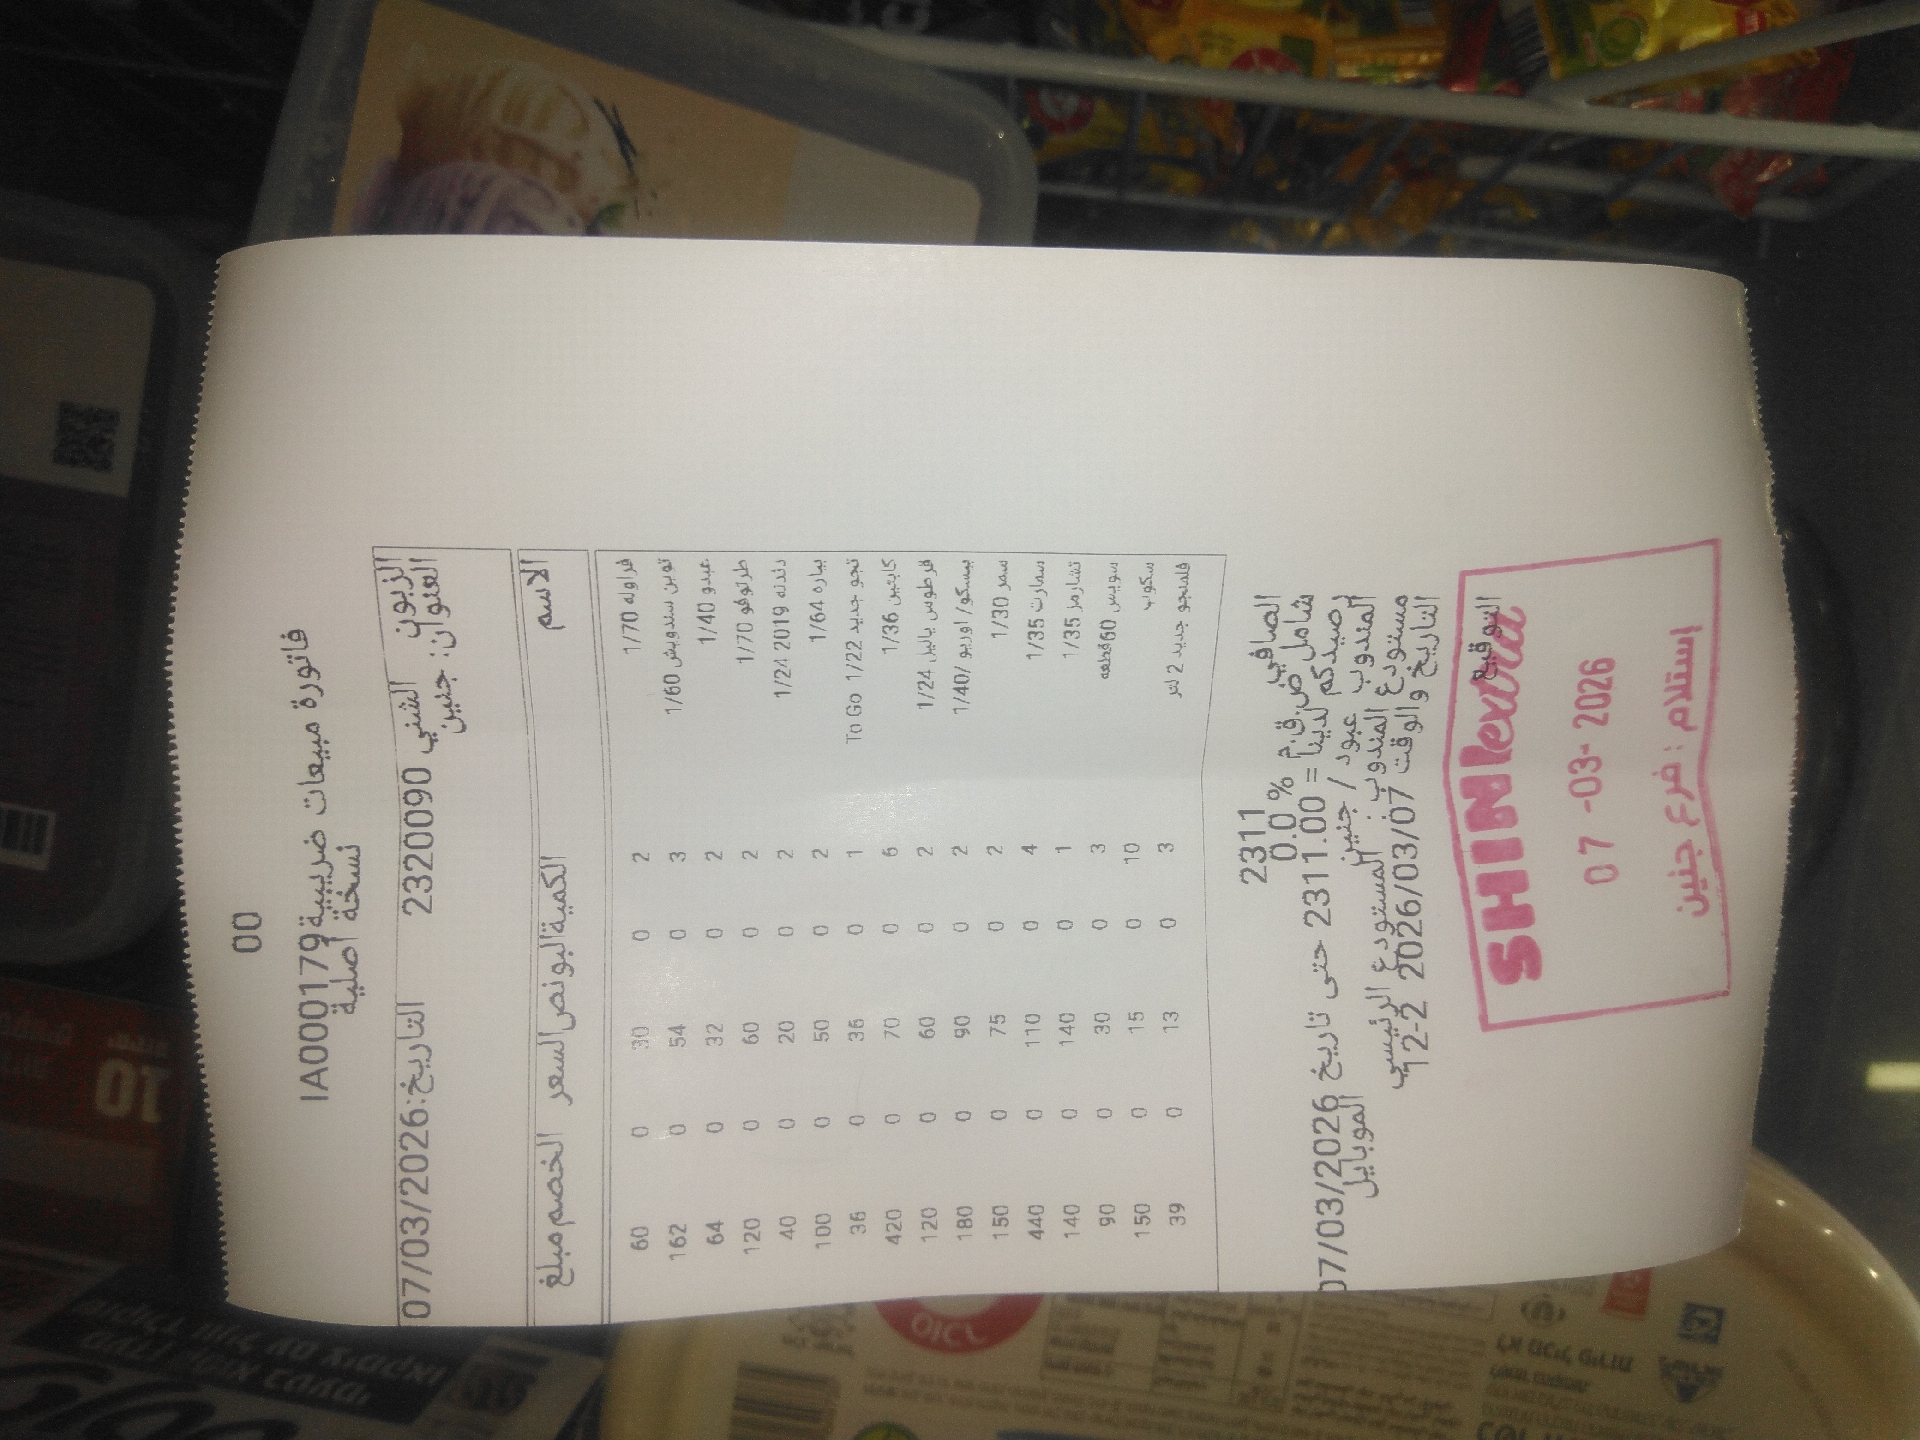 00
فاتورة مبيعات ضريبية IA000179
نسخة اصلية
الزبون الشني 2320090 التاريخ: 07/03/2026
العنوان: جنين
الاسم الكمية البونص السعر الخصم مبلغ
فراوله 1/70 2 0 30 0 60
توين سندويش 1/60 3 0 54 0 162
عبدو 1/40 2 0 32 0 64
طرتوفو 1/70 2 0 60 0 120
دندنه 2019 1/24 2 0 20 0 40
بياره 1/64 2 0 50 0 100
تجو جديد To Go 1/22 1 0 36 0 36
كابتين 1/36 6 0 70 0 420
قرطوس ياليل 1/24 2 0 60 0 120
بيسكو/ اوريو /1/40 2 0 90 0 180
سمر 1/30 2 0 75 0 150
سمارت 1/35 4 0 110 0 440
تشارمز 1/35 1 0 140 0 140
سويس 60قطعه 3 0 30 0 90
سكوب 10 0 15 0 150
فلمنجو جديد 2 لتر 3 0 13 0 39
الصافي 2311
شامل ض.ق.م % 0.0
رصيدكم لدينا = 2311.00 حتى تاريخ 07/03/2026
المندوب عبود / جنين الموبايل
مستودع المندوب: المستودع الرئيسي
التاريخ والوقت 2026/03/07 12-2
التوقيع
SHINI extra
07 -03- 2026
إستلام : فرع جنين
10